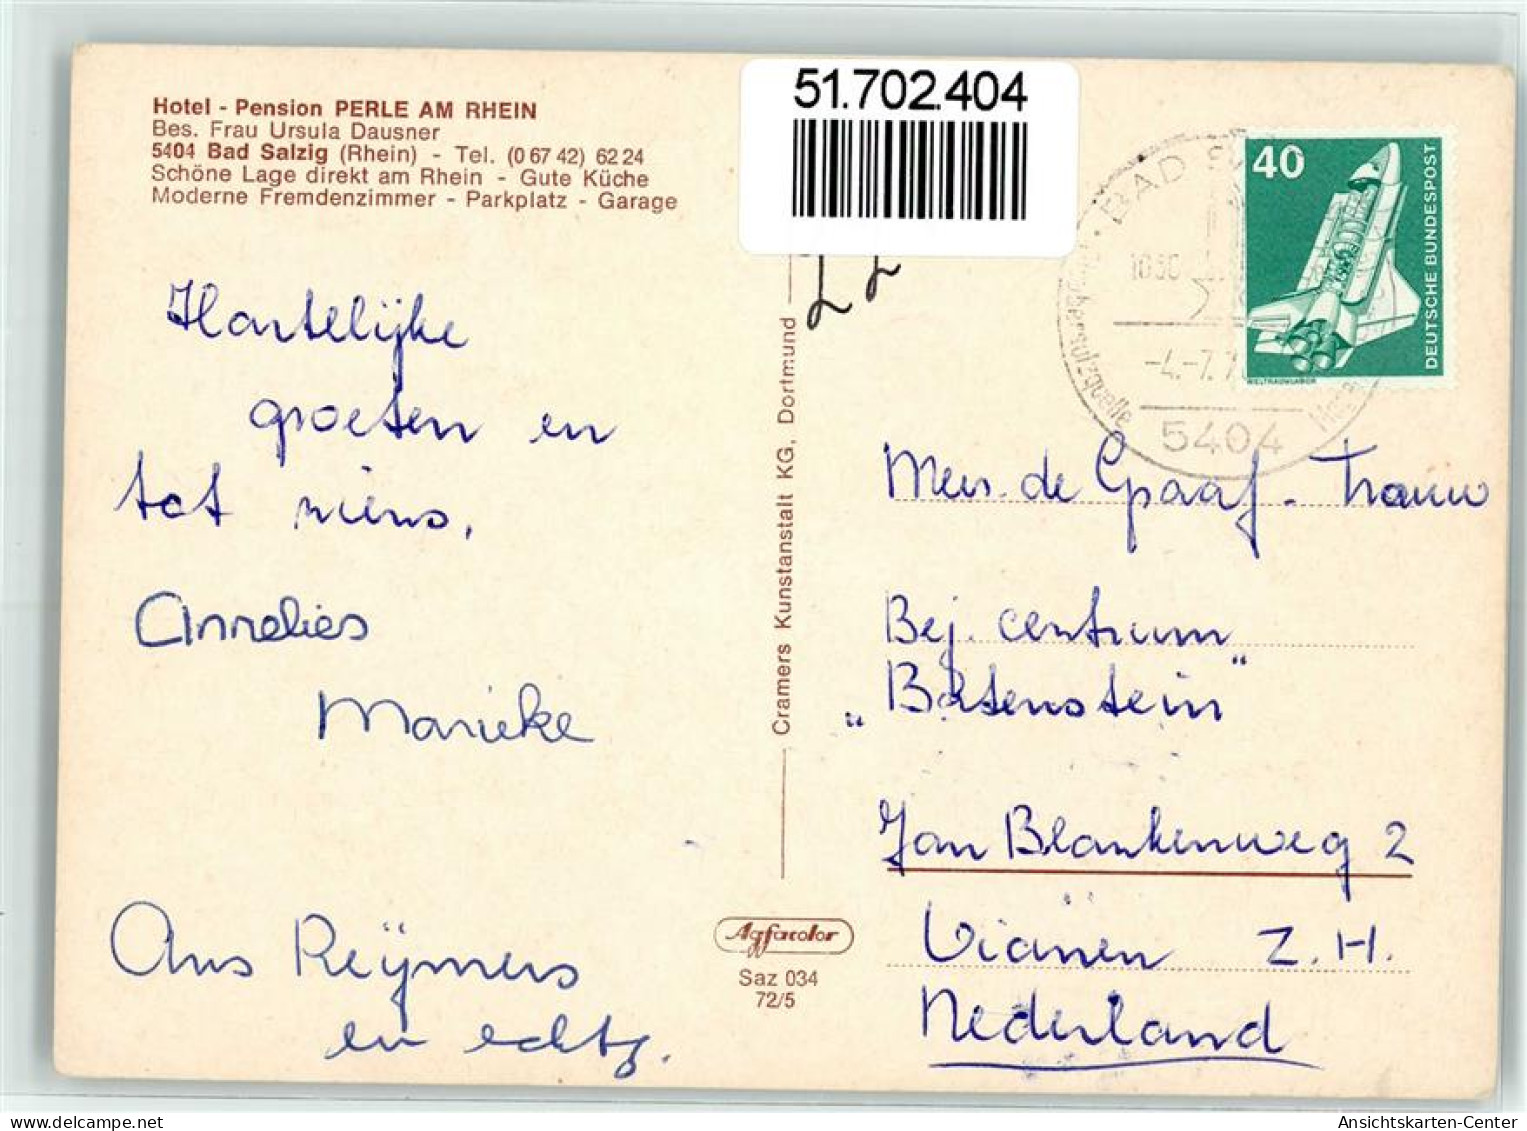 Hotel - Pension PERLE AM RHEIN
Bes. Frau Ursula Dausner
5404 Bad Salzig (Rhein) - Tel. (0 67 42) 62 24
Schöne Lage direkt am Rhein - Gute Küche
Moderne Fremdenzimmer - Parkplatz - Garage
Hartelijke
groeten en
tot ziens,
Annelies
Marieke
Ans Reijmers
en echtg.
51.702.404
Cramers Kunstanstalt KG, Dortmund
Agfacolor
Saz 034
72/5
BAD
-4.-7.7
5404
40
DEUTSCHE BUNDESPOST
WELTRAUMLABOR
Mevr. de Graaf-
Bej. centrum
„Batenstein"
Jan Blankenweg 2
Vianen Z.H.
Nederland
Ansichtskarten-Center